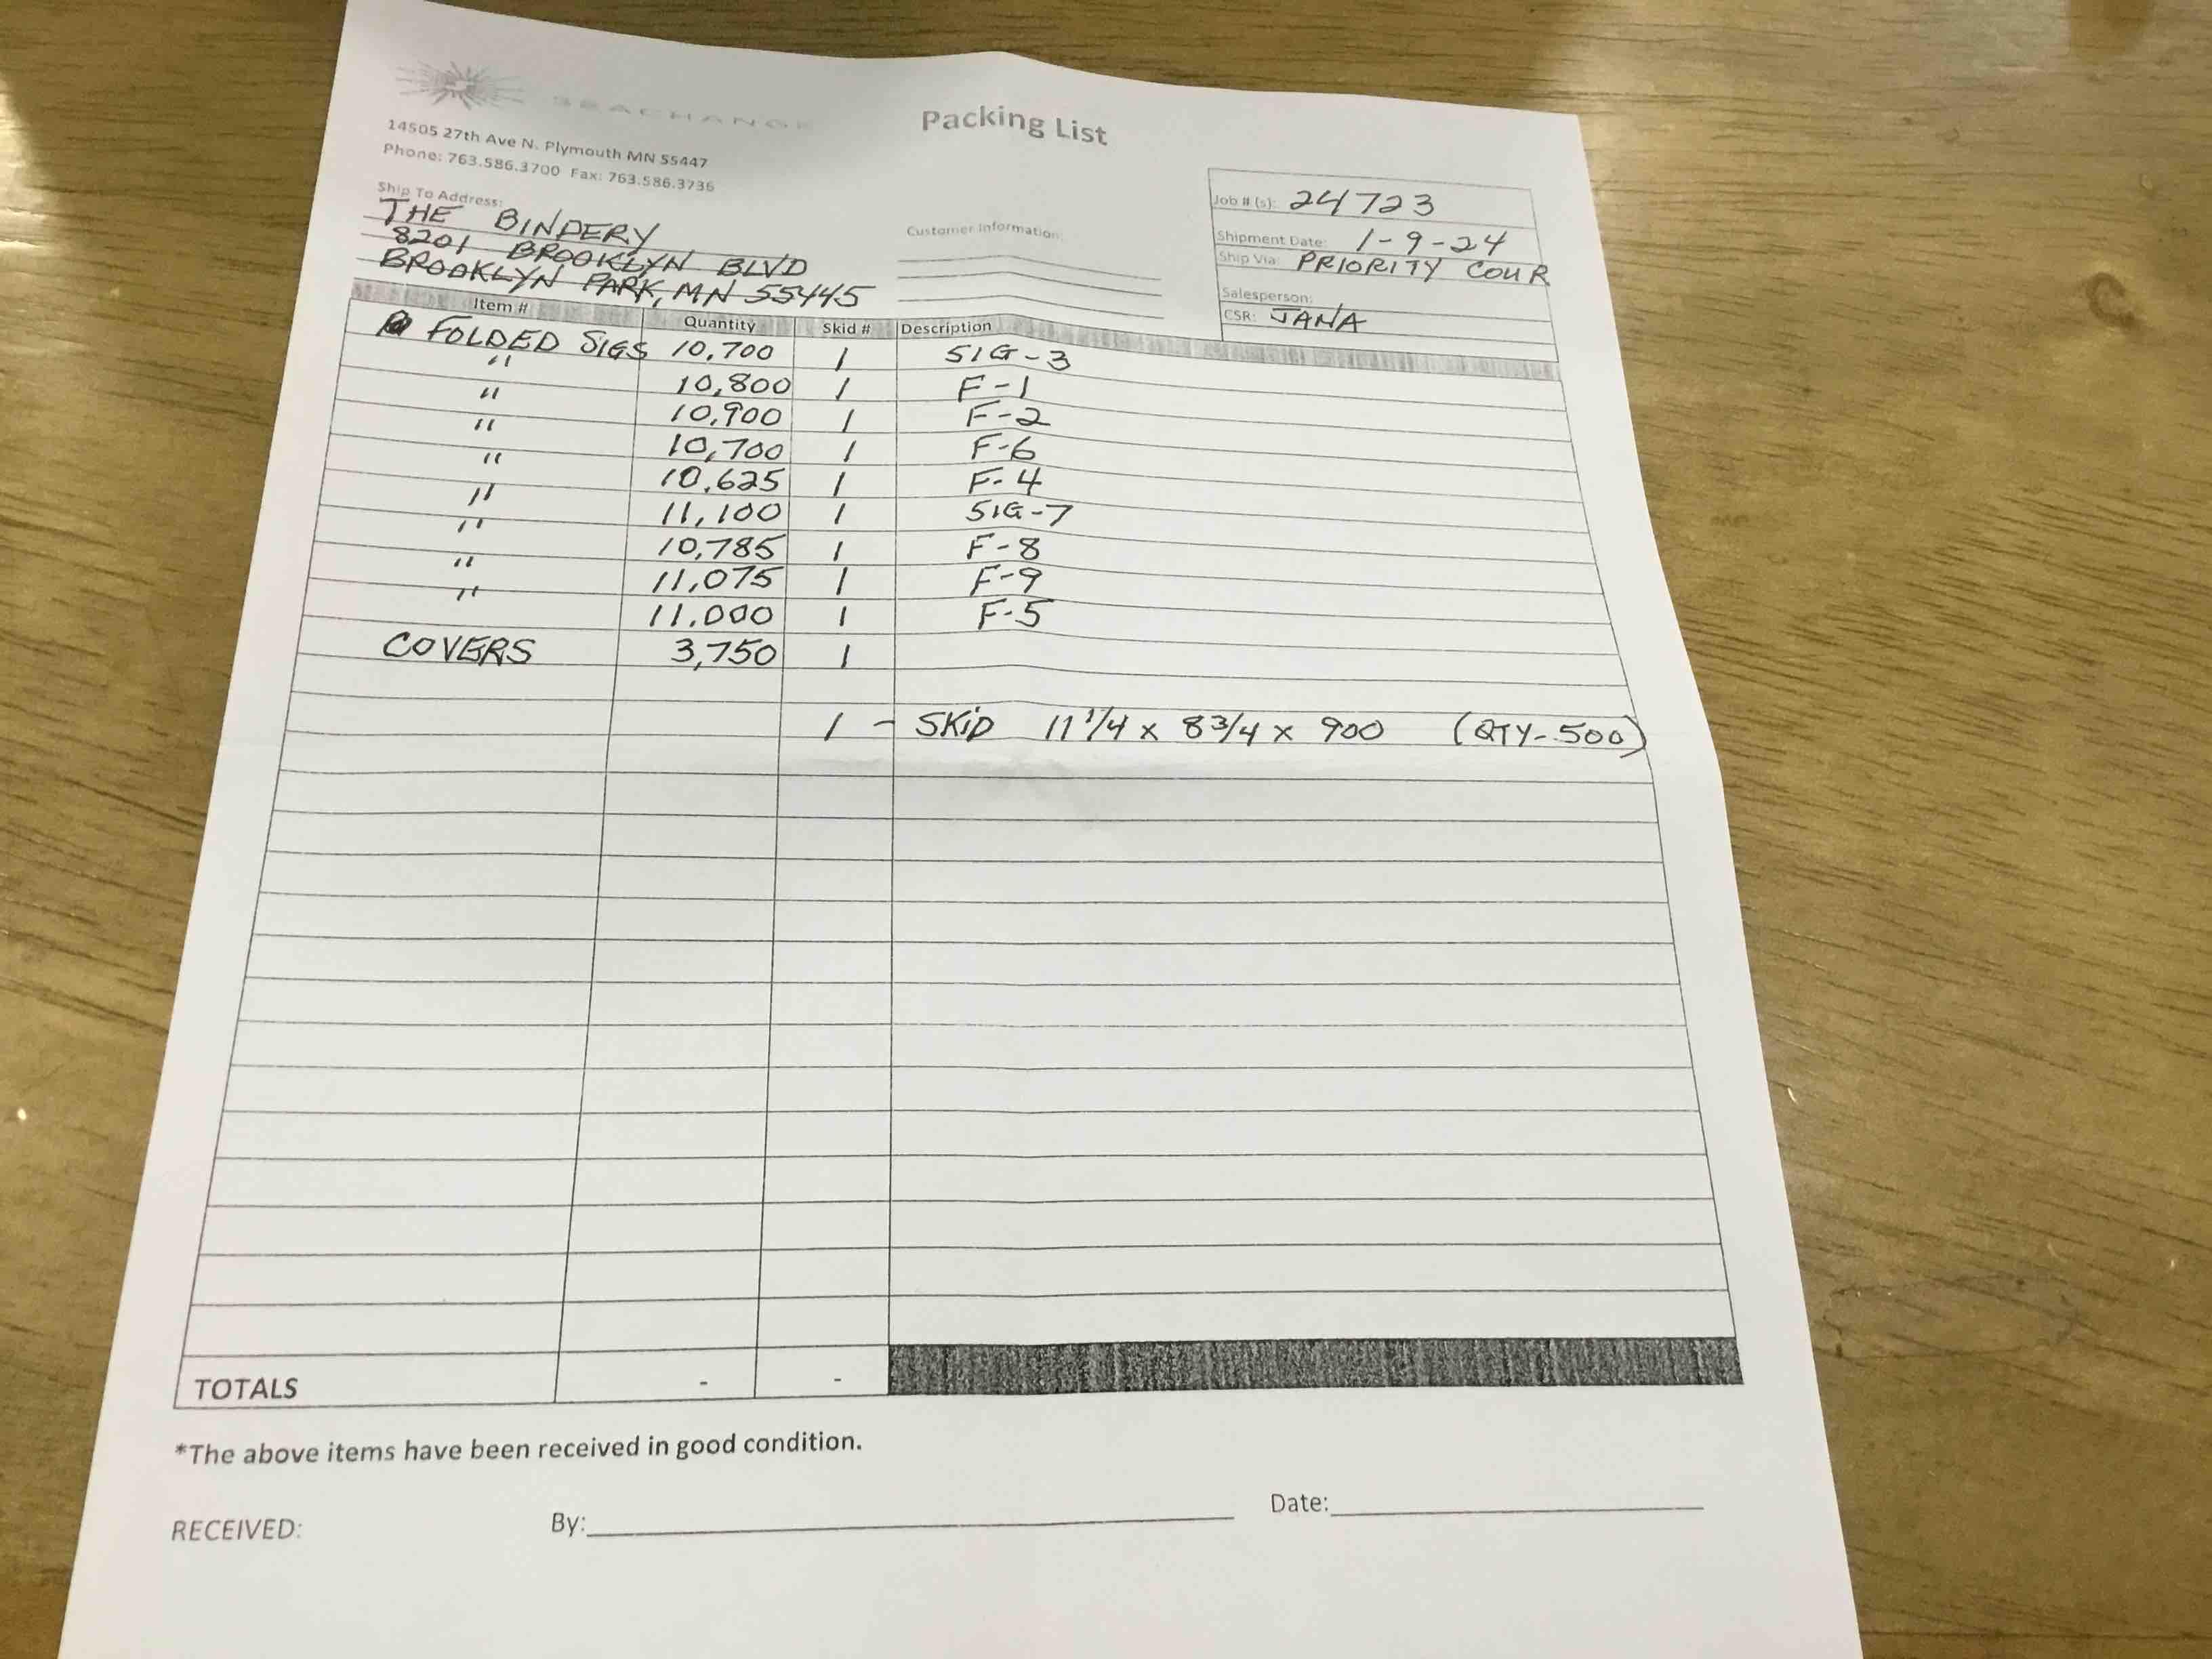 SEACHANGE
Packing List
14505 27th Ave N. Plymouth MN 55447
Phone: 763.586.3700 Fax: 763.586.3736
Ship To Address:
THE BINDERY
8201 BROOKLYN BLVD
BROOKLYN PARK, MN 55445
Customer Information:
Job # (s): 24723
Shipment Date: 1-9-24
Ship Via: PRIORITY COUR
Salesperson:
CSR: JANA
Item # Quantity Skid # Description
FOLDED SIGS 10,700 1 SIG-3
" 10,800 1 F-1
" 10,900 1 F-2
" 10,700 1 F-6
" 10,625 1 F-4
" 11,100 1 SIG-7
" 10,785 1 F-8
" 11,075 1 F-9
" 11,000 1 F-5
COVERS 3,750 1
1 - SKID 11 1/4 x 8 3/4 x 900 (QTY-500)
TOTALS - -
*The above items have been received in good condition.
RECEIVED: By: Date: